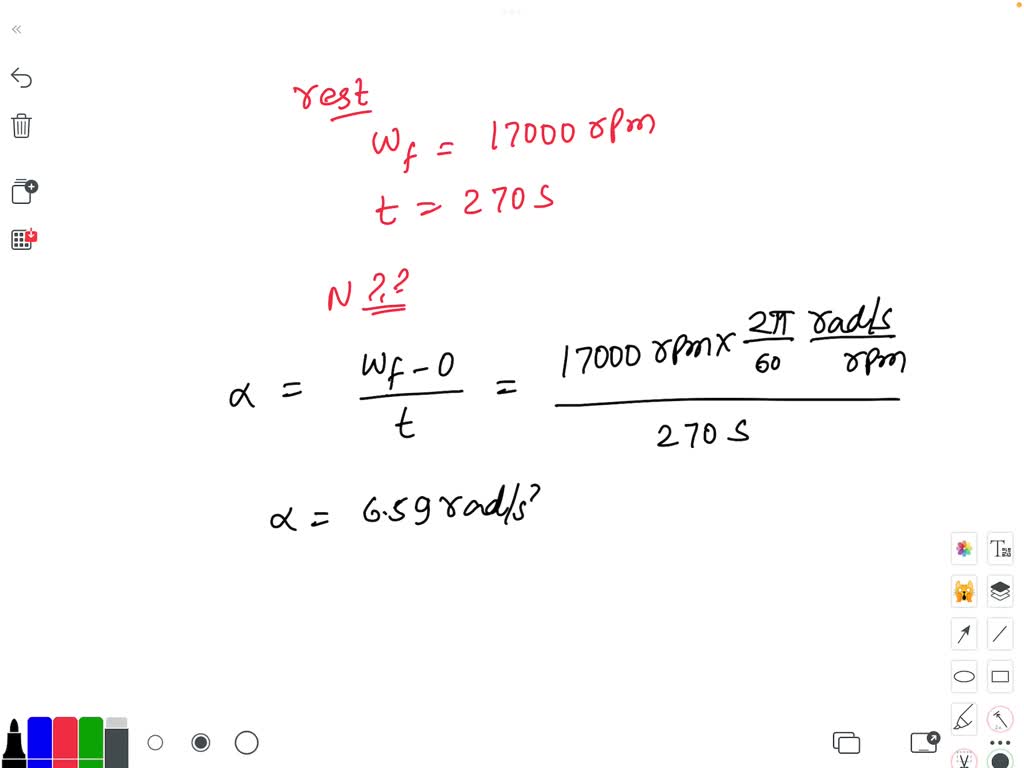 rest
ωf = 17000 rpm
t = 270 s
N ???
α = ωf - 0 / t = 17000 rpm x 2π/60 rad/s/rpm / 270 s
α = 6.59 rad/s²